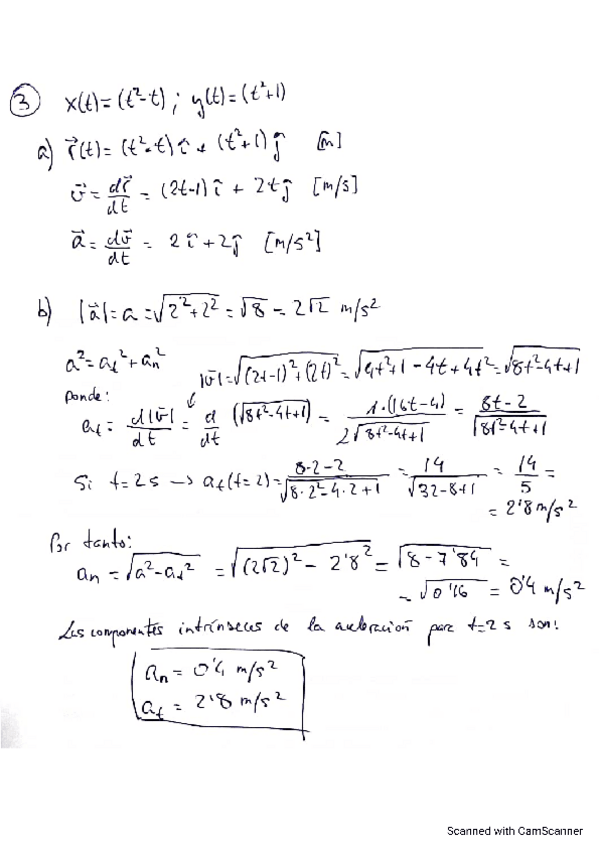 ③ x(t)=(t²-t) ; y(t)=(t²+1)
a) r⃗(t)=(t²-t)î + (t²+1)ĵ [m]
v⃗ = dr⃗/dt = (2t-1)î + 2tĵ [m/s]
a⃗ = dv⃗/dt = 2î+2ĵ [m/s²]
b) |a⃗|=a=√(2²+2²)=√8=2√2 m/s²
a²=at²+an² |v⃗|=√((2t-1)²+(2t)²)=√(4t²+1-4t+4t²)=√(8t²-4t+1)
Donde:
at = d|v⃗|/dt = d/dt (√(8t²-4t+1)) = 1·(16t-4)/(2√(8t²-4t+1)) = (8t-2)/√(8t²-4t+1)
Si t=2s → at(t=2)= (8·2-2)/√(8·2²-4·2+1) = 14/√(32-8+1) = 14/5 =
= 2'8 m/s²
Por tanto:
an = √(a²-at²) = √((2√2)²-2'8²) = √(8-7'84) =
= √0'16 = 0'4 m/s²
Las componentes intrínsecas de la aceleración para t=2s son:
an = 0'4 m/s²
at = 2'8 m/s²
Scanned with CamScanner